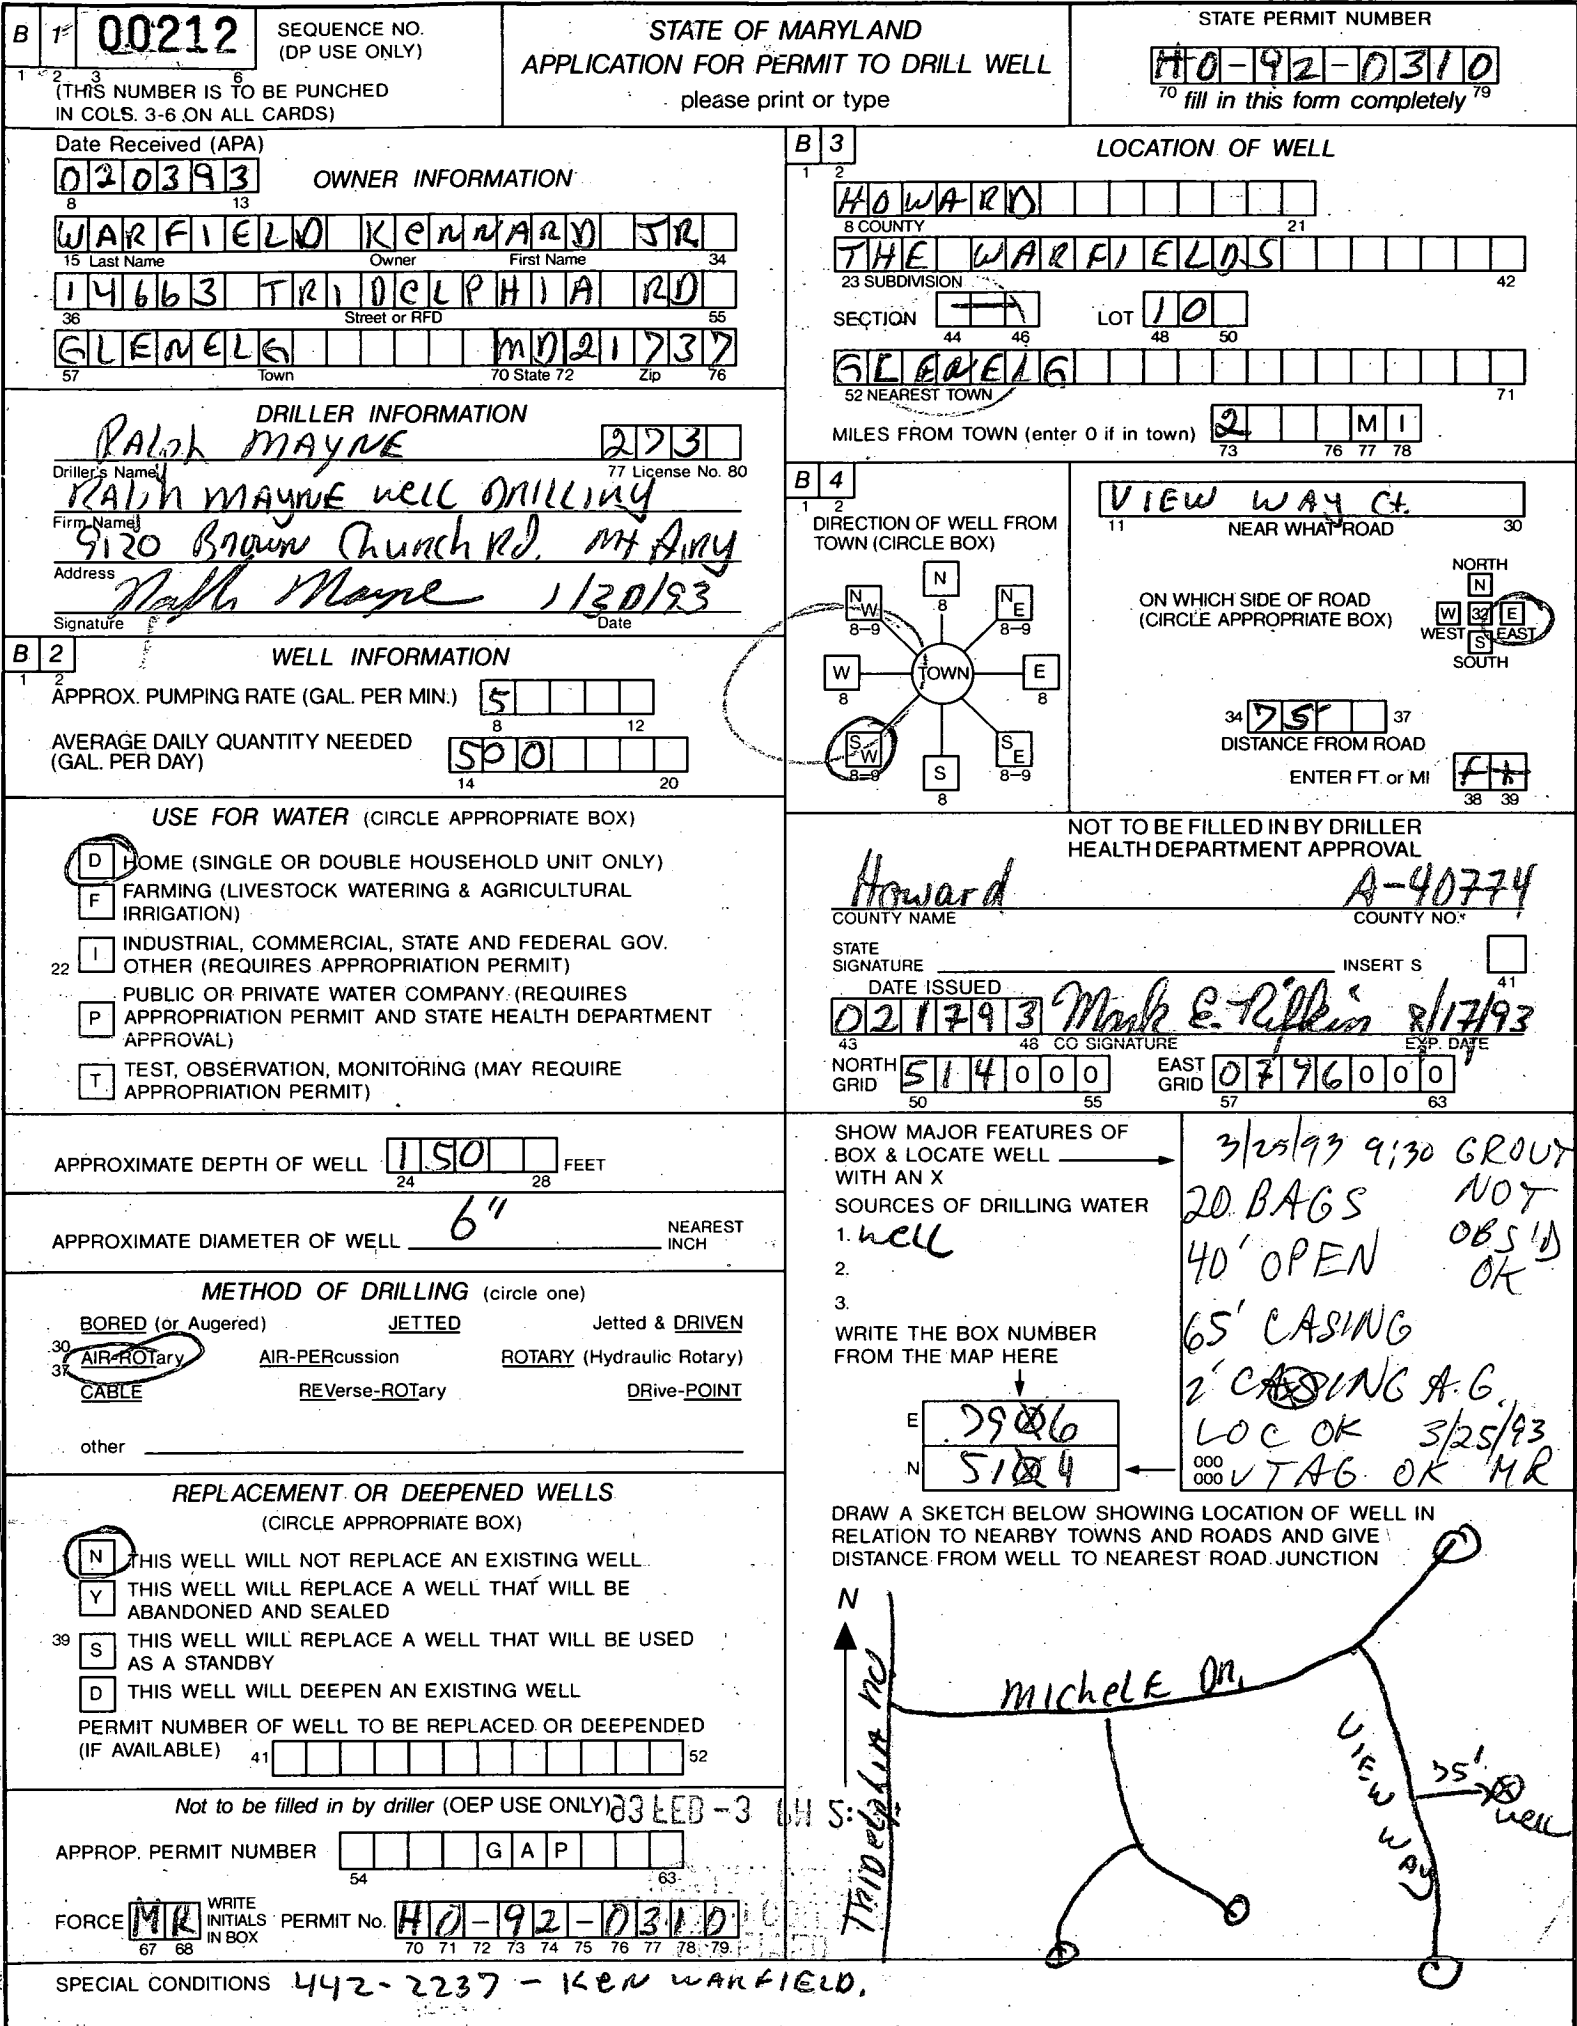 B 1 00212 SEQUENCE NO. (DP USE ONLY)
1 2 3 6
(THIS NUMBER IS TO BE PUNCHED
IN COLS. 3-6 ON ALL CARDS)
STATE OF MARYLAND
APPLICATION FOR PERMIT TO DRILL WELL
please print or type
STATE PERMIT NUMBER
HO-92-0310
70 fill in this form completely 79
Date Received (APA)
020393 OWNER INFORMATION
8 13
WARFIELD KENNARD JR
15 Last Name Owner First Name 34
14663 TRIDELPHIA RD
36 Street or RFD 55
GLENELG MD 21737
57 Town 70 State 72 Zip 76
DRILLER INFORMATION
RALph MAYNE 273
Driller's Name 77 License No. 80
RALph MAYNE WELL DRILLINg
Firm Name
9120 Brown Church Rd. Mt Airy
Address
Ralph Mayne 1/30/93
Signature Date
B 2 WELL INFORMATION
1 2
APPROX. PUMPING RATE (GAL. PER MIN.) 5
8 12
AVERAGE DAILY QUANTITY NEEDED
(GAL. PER DAY) 500
14 20
USE FOR WATER (CIRCLE APPROPRIATE BOX)
D HOME (SINGLE OR DOUBLE HOUSEHOLD UNIT ONLY)
F FARMING (LIVESTOCK WATERING & AGRICULTURAL
IRRIGATION)
22 I INDUSTRIAL, COMMERCIAL, STATE AND FEDERAL GOV.
OTHER (REQUIRES APPROPRIATION PERMIT)
P PUBLIC OR PRIVATE WATER COMPANY (REQUIRES
APPROPRIATION PERMIT AND STATE HEALTH DEPARTMENT
APPROVAL)
T TEST, OBSERVATION, MONITORING (MAY REQUIRE
APPROPRIATION PERMIT)
APPROXIMATE DEPTH OF WELL 150 FEET
24 28
APPROXIMATE DIAMETER OF WELL 6" NEAREST
INCH
METHOD OF DRILLING (circle one)
BORED (or Augered) JETTED Jetted & DRIVEN
30 AIR-ROTary AIR-PERcussion ROTARY (Hydraulic Rotary)
37 CABLE REVerse-ROTary DRive-POINT
other
REPLACEMENT OR DEEPENED WELLS
(CIRCLE APPROPRIATE BOX)
N THIS WELL WILL NOT REPLACE AN EXISTING WELL
Y THIS WELL WILL REPLACE A WELL THAT WILL BE
ABANDONED AND SEALED
39 S THIS WELL WILL REPLACE A WELL THAT WILL BE USED
AS A STANDBY
D THIS WELL WILL DEEPEN AN EXISTING WELL
PERMIT NUMBER OF WELL TO BE REPLACED OR DEEPENDED
(IF AVAILABLE) 41 52
Not to be filled in by driller (OEP USE ONLY) 93 FEB-3
APPROP. PERMIT NUMBER G A P
54 63
FORCE MR WRITE INITIALS IN BOX PERMIT No. HO-92-0310
67 68 70 71 72 73 74 75 76 77 78 79
SPECIAL CONDITIONS 442-2237 - KEN WARFIELD.
B 3 LOCATION OF WELL
1 2
HOWARD
8 COUNTY 21
THE WARFIELDS
23 SUBDIVISION 42
SECTION LOT 10
44 46 48 50
GLENELG
52 NEAREST TOWN 71
MILES FROM TOWN (enter 0 if in town) 2 M I
73 76 77 78
B 4
1 2
DIRECTION OF WELL FROM
TOWN (CIRCLE BOX)
N
8
NW NE
8-9 8-9
W TOWN E
8 8
SW SE
8-9 8-9
S
8
VIEW WAY Ct.
11 NEAR WHAT ROAD 30
ON WHICH SIDE OF ROAD
(CIRCLE APPROPRIATE BOX)
NORTH
N
W 32 E
WEST EAST
S
SOUTH
34 75 37
DISTANCE FROM ROAD
ENTER FT. or MI ft
38 39
NOT TO BE FILLED IN BY DRILLER
HEALTH DEPARTMENT APPROVAL
Howard A-40774
COUNTY NAME COUNTY NO.
STATE
SIGNATURE INSERT S
41
DATE ISSUED
021793 Mark E. Rifkin 8/17/93
43 48 CO SIGNATURE EXP. DATE
NORTH GRID 514000 EAST GRID 0796000
50 55 57 63
SHOW MAJOR FEATURES OF
BOX & LOCATE WELL
WITH AN X
SOURCES OF DRILLING WATER
1. well
2.
3.
WRITE THE BOX NUMBER
FROM THE MAP HERE
E
N
3/25/93 9:30 GROUT
20 BAGS NOT
40' OPEN OBS'D
OK
65' CASING
2' CASING A.G.
LOC OK 3/25/93
000
000 TAG OK MR
DRAW A SKETCH BELOW SHOWING LOCATION OF WELL IN
RELATION TO NEARBY TOWNS AND ROADS AND GIVE
DISTANCE FROM WELL TO NEAREST ROAD JUNCTION
N
TRIDelphIA RD
MIChelE DR.
VIEW WAY
75'
well